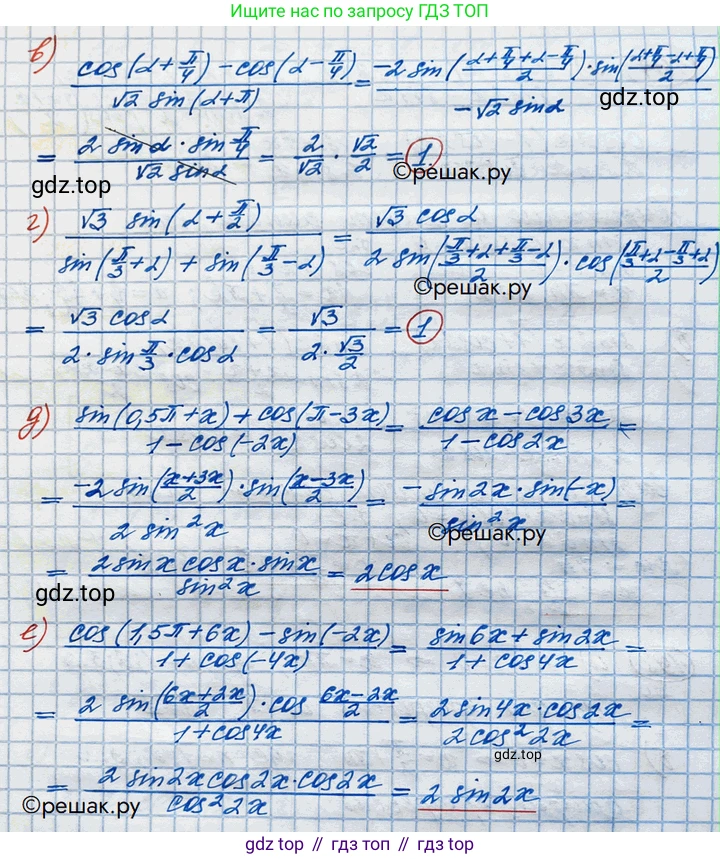 Ищите нас по запросу ГДЗ ТОП
в) (cos(α + π/4) - cos(α - π/4)) / (√2 sin(α + π)) = (-2 sin((α + π/4 + α - π/4)/2) · sin((α + π/4 - α + π/4)/2)) / (-√2 sin α)
= (2 sin α · sin π/4) / (√2 sin α) = 2/√2 · √2/2 = 1
gdz.top
©решак.ру
gdz.top
г) (√3 sin(α + π/2)) / (sin(π/3 + α) + sin(π/3 - α)) = (√3 cos α) / (2 sin((π/3 + α + π/3 - α)/2) · cos((π/3 + α - π/3 + α)/2))
©решак.ру
= (√3 cos α) / (2 · sin π/3 · cos α) = √3 / (2 · √3/2) = 1
д) (sin(0,5π + x) + cos(π - 3x)) / (1 - cos(-2x)) = (cos x - cos 3x) / (1 - cos 2x) =
= (-2 sin((x + 3x)/2) · sin((x - 3x)/2)) / (2 sin² x) = (- sin 2x · sin(-x)) / (sin² x) =
©решак.ру
= (2 sin x cos x · sin x) / (sin² x) = 2 cos x
gdz.top
е) (cos(1,5π + 6x) - sin(-2x)) / (1 + cos(-4x)) = (sin 6x + sin 2x) / (1 + cos 4x) =
= (2 sin((6x + 2x)/2) · cos (6x - 2x)/2) / (1 + cos 4x) = (2 sin 4x · cos 2x) / (2 cos² 2x) =
gdz.top
= (2 sin 2x cos 2x · cos 2x) / (cos² 2x) = 2 sin 2x
©решак.ру
gdz.top // gdz.top // gdz.top // gdz.top